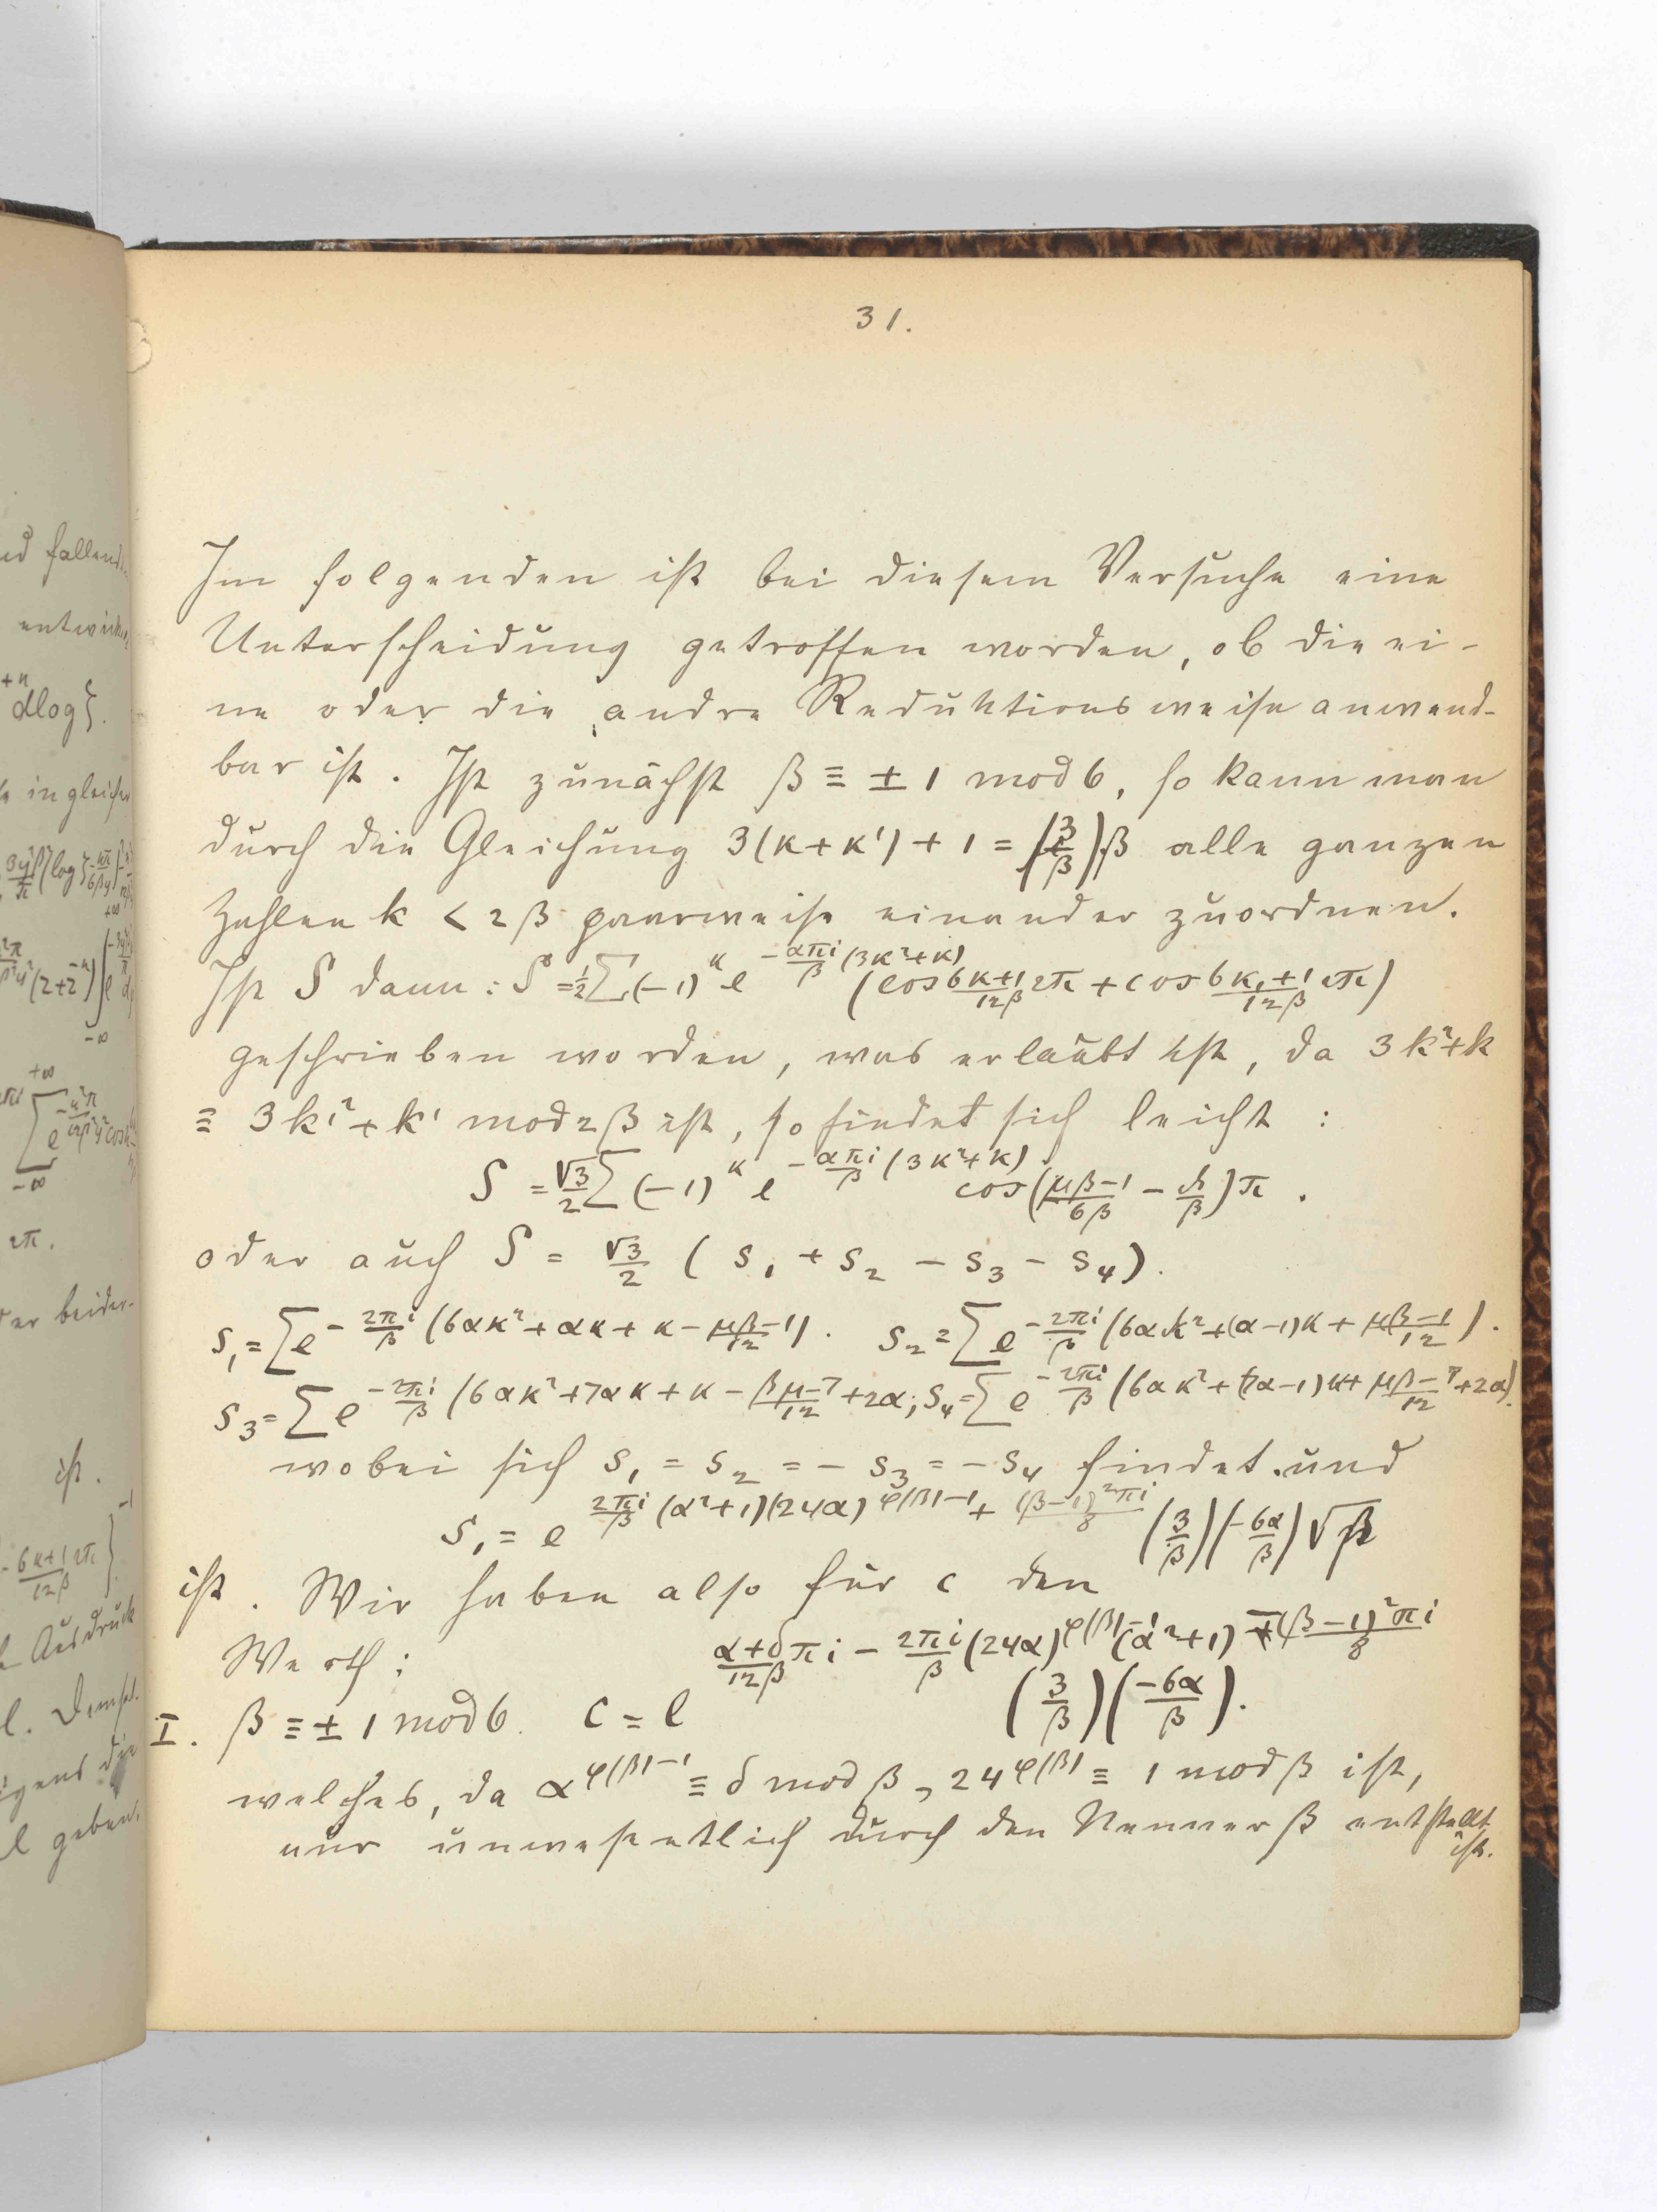 31.
Im folgenden ist bei diesem Versuche eine
Unterscheidung getroffen worden, ob die ei-
ne oder die andre Reduktionsweise anwend-
bar ist. Ist zunächst β ≡ ± 1 mod 6, so kann man
durch die Gleichung 3(κ+κ') + 1 = (3/β)β alle ganzen
Zahlen k < 2β paarweise einander zuordnen.
Ist S dann: S = 1/2 ∑(-1)^κ e^{-απi/β (3κ²+κ)} (cos (6κ+1)/12β 2π + cos (6κ,+1)/12β 2π)
geschrieben worden, was erlaubt ist, da 3k²+k
≡ 3k'²+k' mod 2β ist, so findet sich leicht :
S = √3/2 ∑(-1)^κ e^{-απi/β (3κ²+κ)} cos((μβ-1)/6β - k/β)π .
oder auch S = √3/2 ( s₁ + s₂ - s₃ - s₄).
s₁ = ∑e^{-2πi/β (6ακ²+ακ+κ-(μβ-1)/12)} . s₂ = ∑e^{-2πi/β (6ακ²+(α-1)κ+(μβ-1)/12)} .
s₃ = ∑e^{-2πi/β (6ακ²+7ακ+κ-(βμ-7)/12+2α}; s₄ = ∑e^{-2πi/β (6ακ²+(7α-1)κ+(μβ-7)/12+2α)}.
wobei sich s₁ = s₂ = - s₃ = - s₄ findet. und
s₁ = e^{2πi/β (α²+1)(24α)^{φ(β)-1} + (β-1)²πi/8} (3/β)(-6α/β)√β
ist. Wir haben also für c den
Werth:
I. β ≡ ± 1 mod 6. C = e^{(α+δ)/12β πi - 2πi/β (24α)^{φ(β)-1}(α²+1) - (β-1)²πi/8} (3/β)(-6α/β).
welches, da α^{φ(β)-1} ≡ δ mod β, 24^{φ(β)} ≡ 1 mod β ist,
nur unwesentlich durch den Nenner β entstellt
ist.